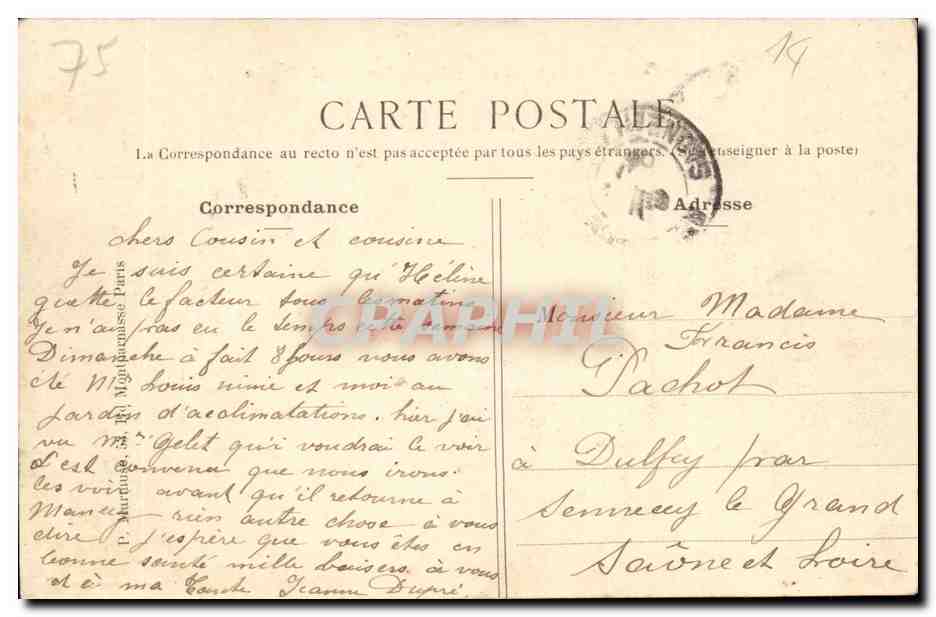 75
CARTE POSTALE
La Correspondance au recto n'est pas acceptée par tous les pays étrangers. (Se renseigner à la poste)
Correspondance
chers Cousin et cousine
Je suis certaine qu'Héline
guette le facteur tous les matins
Je n'ai pas eu le temps cette semain
Dimanche à fait 8 jours vous avons
été M Louis mimie et moi au
jardin d'acolimatations. hier j'ai
vu mr Gelet qui voudrai le voir
s'est convenu que nous irons
les voir avant qu'il retourne à
Mancey rien autre chose à vous
dire j'espère que vous êtes en
bonne santé mille baisers à vous
et à ma Tante Jeanne Dupré
P. Marmuse, Bd Montparnasse Paris
Adresse
Monsieur Madame
Francis
Pachot
à Dulfey par
Sennecey le Grand
Saône et Loire
CPAPHIL